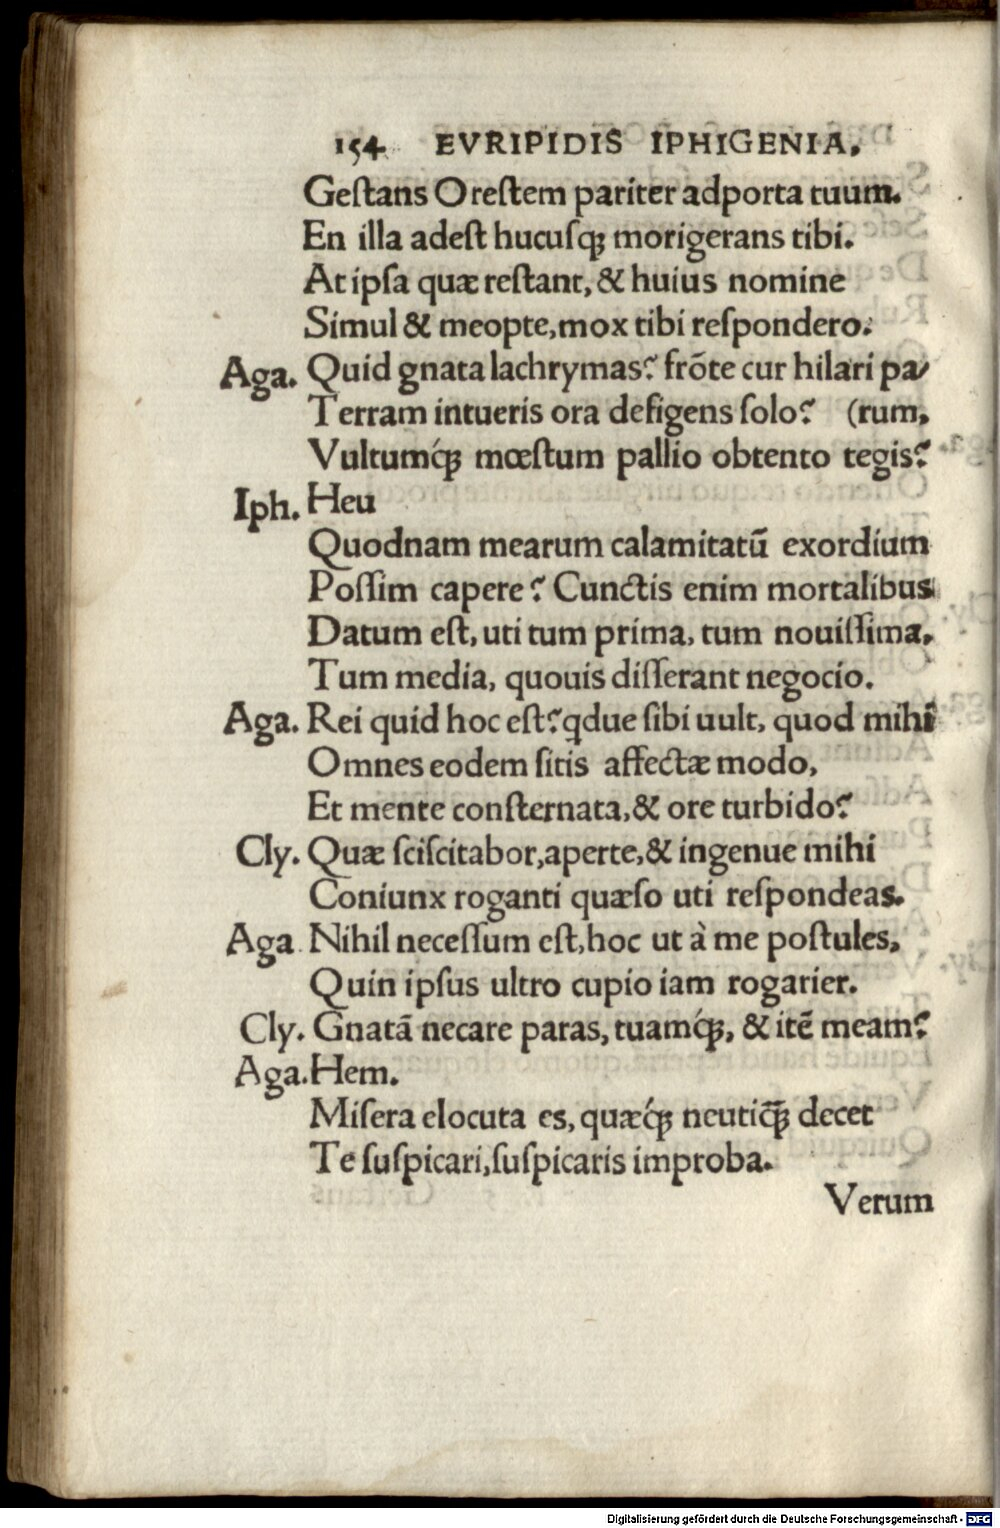 154 EVRIPIDIS IPHIGENIA.
Geſtans Oreſtem pariter adporta tuum.
En illa adeſt hucuſꝗ morigerans tibi.
At ipſa quæ reſtant, & huius nomine
Simul & meopte, mox tibi reſpondero.
Aga. Quid gnata lachrymas? frõte cur hilari pa/
Terram intueris ora defigens ſolo? (rum,
Vultumꝗ́ mœſtum pallio obtento tegis?
Iph. Heu
Quodnam mearum calamitatũ exordium
Poſſim capere? Cunctis enim mortalibus
Datum eſt, uti tum prima, tum nouiſſima,
Tum media, quouis diſſerant negocio.
Aga. Rei quid hoc eſt? qdue ſibi uult, quod mihi
Omnes eodem ſitis affectæ modo,
Et mente conſternata, & ore turbido?
Cly. Quæ ſciſcitabor, aperte, & ingenue mihi
Coniunx roganti quæſo uti reſpondeas.
Aga. Nihil neceſſum eſt, hoc ut à me poſtules,
Quin ipſus ultro cupio iam rogarier.
Cly. Gnatã necare paras, tuamꝗ́, & itẽ meam?
Aga. Hem.
Miſera elocuta es, quæꝗ́ neutiꝗ̃ decet
Te ſuſpicari, ſuſpicaris improba.
Verum
Digitalisierung gefördert durch die Deutsche Forschungsgemeinschaft - DFG